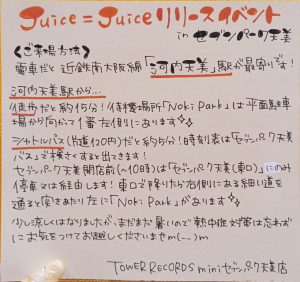 Juice=Juice リリースイベント
in セブンパーク天美
<ご来場方法>
電車だと近鉄南大阪線「河内天美」駅が最寄りです!
河内天美駅から…
徒歩だと約15分!待機場所「Noki Park」は平面駐車
場から向かって1番左側にあります
シャトルバス(片道120円)だと約5分!時刻表は「セブンパーク天美
バス」で検さくすると出てきます!
セブンパーク天美開店前(~10時)は「セブンパーク天美(東口)」にのみ
停車又は経由します!東口で降りたら右側にある細い道を
通ると突きあたり左に「Noki Park」があります
少し涼しくはなりましたが、まだまだ暑いので熱中症対策は忘れず
にお気をつけてお越しくださいませm(--)m
TOWER RECORDS miniセブンパーク天美店